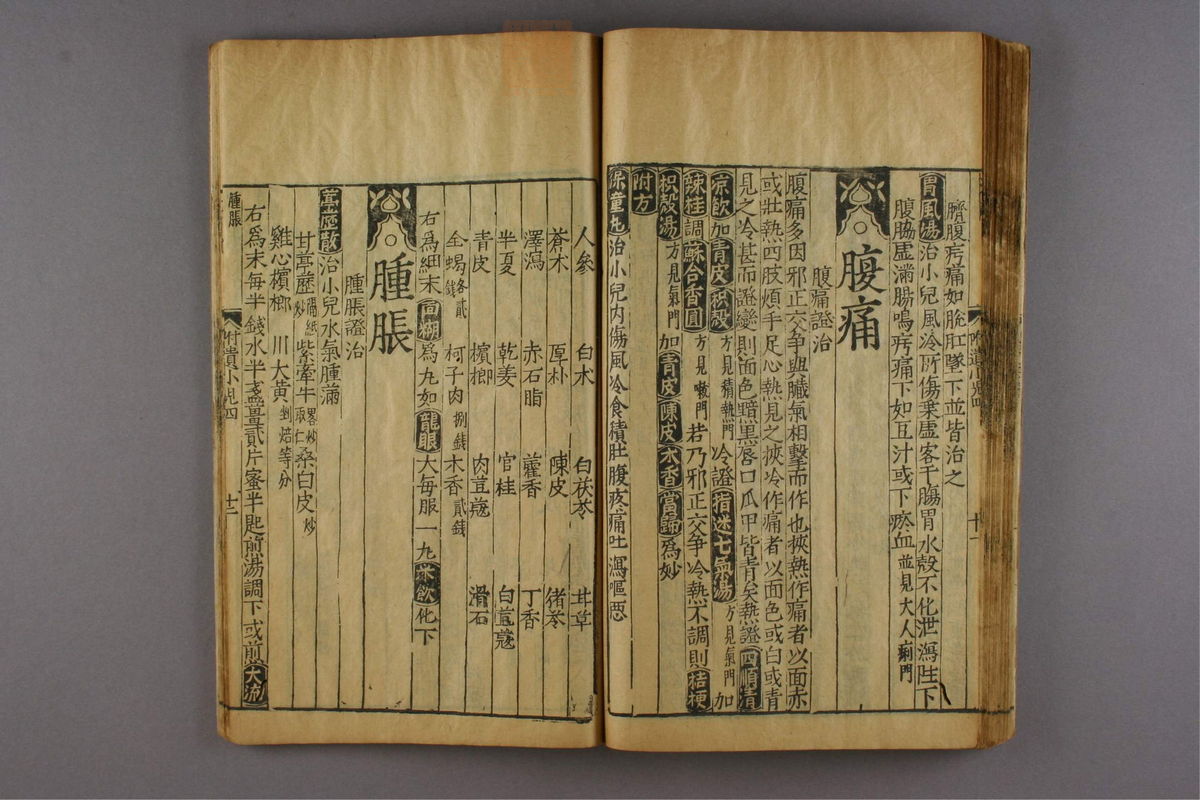 臍腹疞痛如脫肛墜下並皆治之
胃風湯治小兒風冷所傷乗虛客于腸胃水穀不化泄瀉注下
腹脇虛滿腸鳴疞痛下如豆汁或下瘀血並見大人痢門
腹痛
腹痛證治
腹痛多因邪正交爭與臟氣相擊而作也挾熱作痛者以面赤
或壯熱四肢煩手足心熱見之挾冷作痛者以面色或白或青
見之冷甚而證變則面色黯黑唇口瓜甲皆青矣熱證四順清
凉飲加青皮枳殼方見積熱門冷證指迷七氣湯方見氣門加
辣桂調蘇合香圓方見嗽門若乃邪正交爭冷熱不調則桔梗
枳殼湯方見氣門加青皮陳皮木香當歸爲妙
附方
保童丸治小兒内傷風冷食積肚腹疼痛吐瀉嘔惡
十一
人參 白朮 白茯苓 甘草
蒼朮 厚朴 陳皮 猪苓
澤瀉 赤石脂 藿香 丁香
半夏 乾姜 官桂 白荳蔻
青皮 檳榔 肉荳蔻 滑石
全蝎各貳錢 柯子肉捌錢 木香貳錢
右爲細末面糊爲丸如龍眼大每服一丸茶飲化下
腫脹
腫脹證治
葶藶散治小兒水氣腫滿
甘葶藶隔紙炒 紫牽牛畧炒取仁 桑白皮炒
雞心檳榔 川大黃剉焙等分
右爲末每半錢水半盞薑貳片蜜半匙煎湯調下或煎大流
腫脹
附遺小兒四
十二